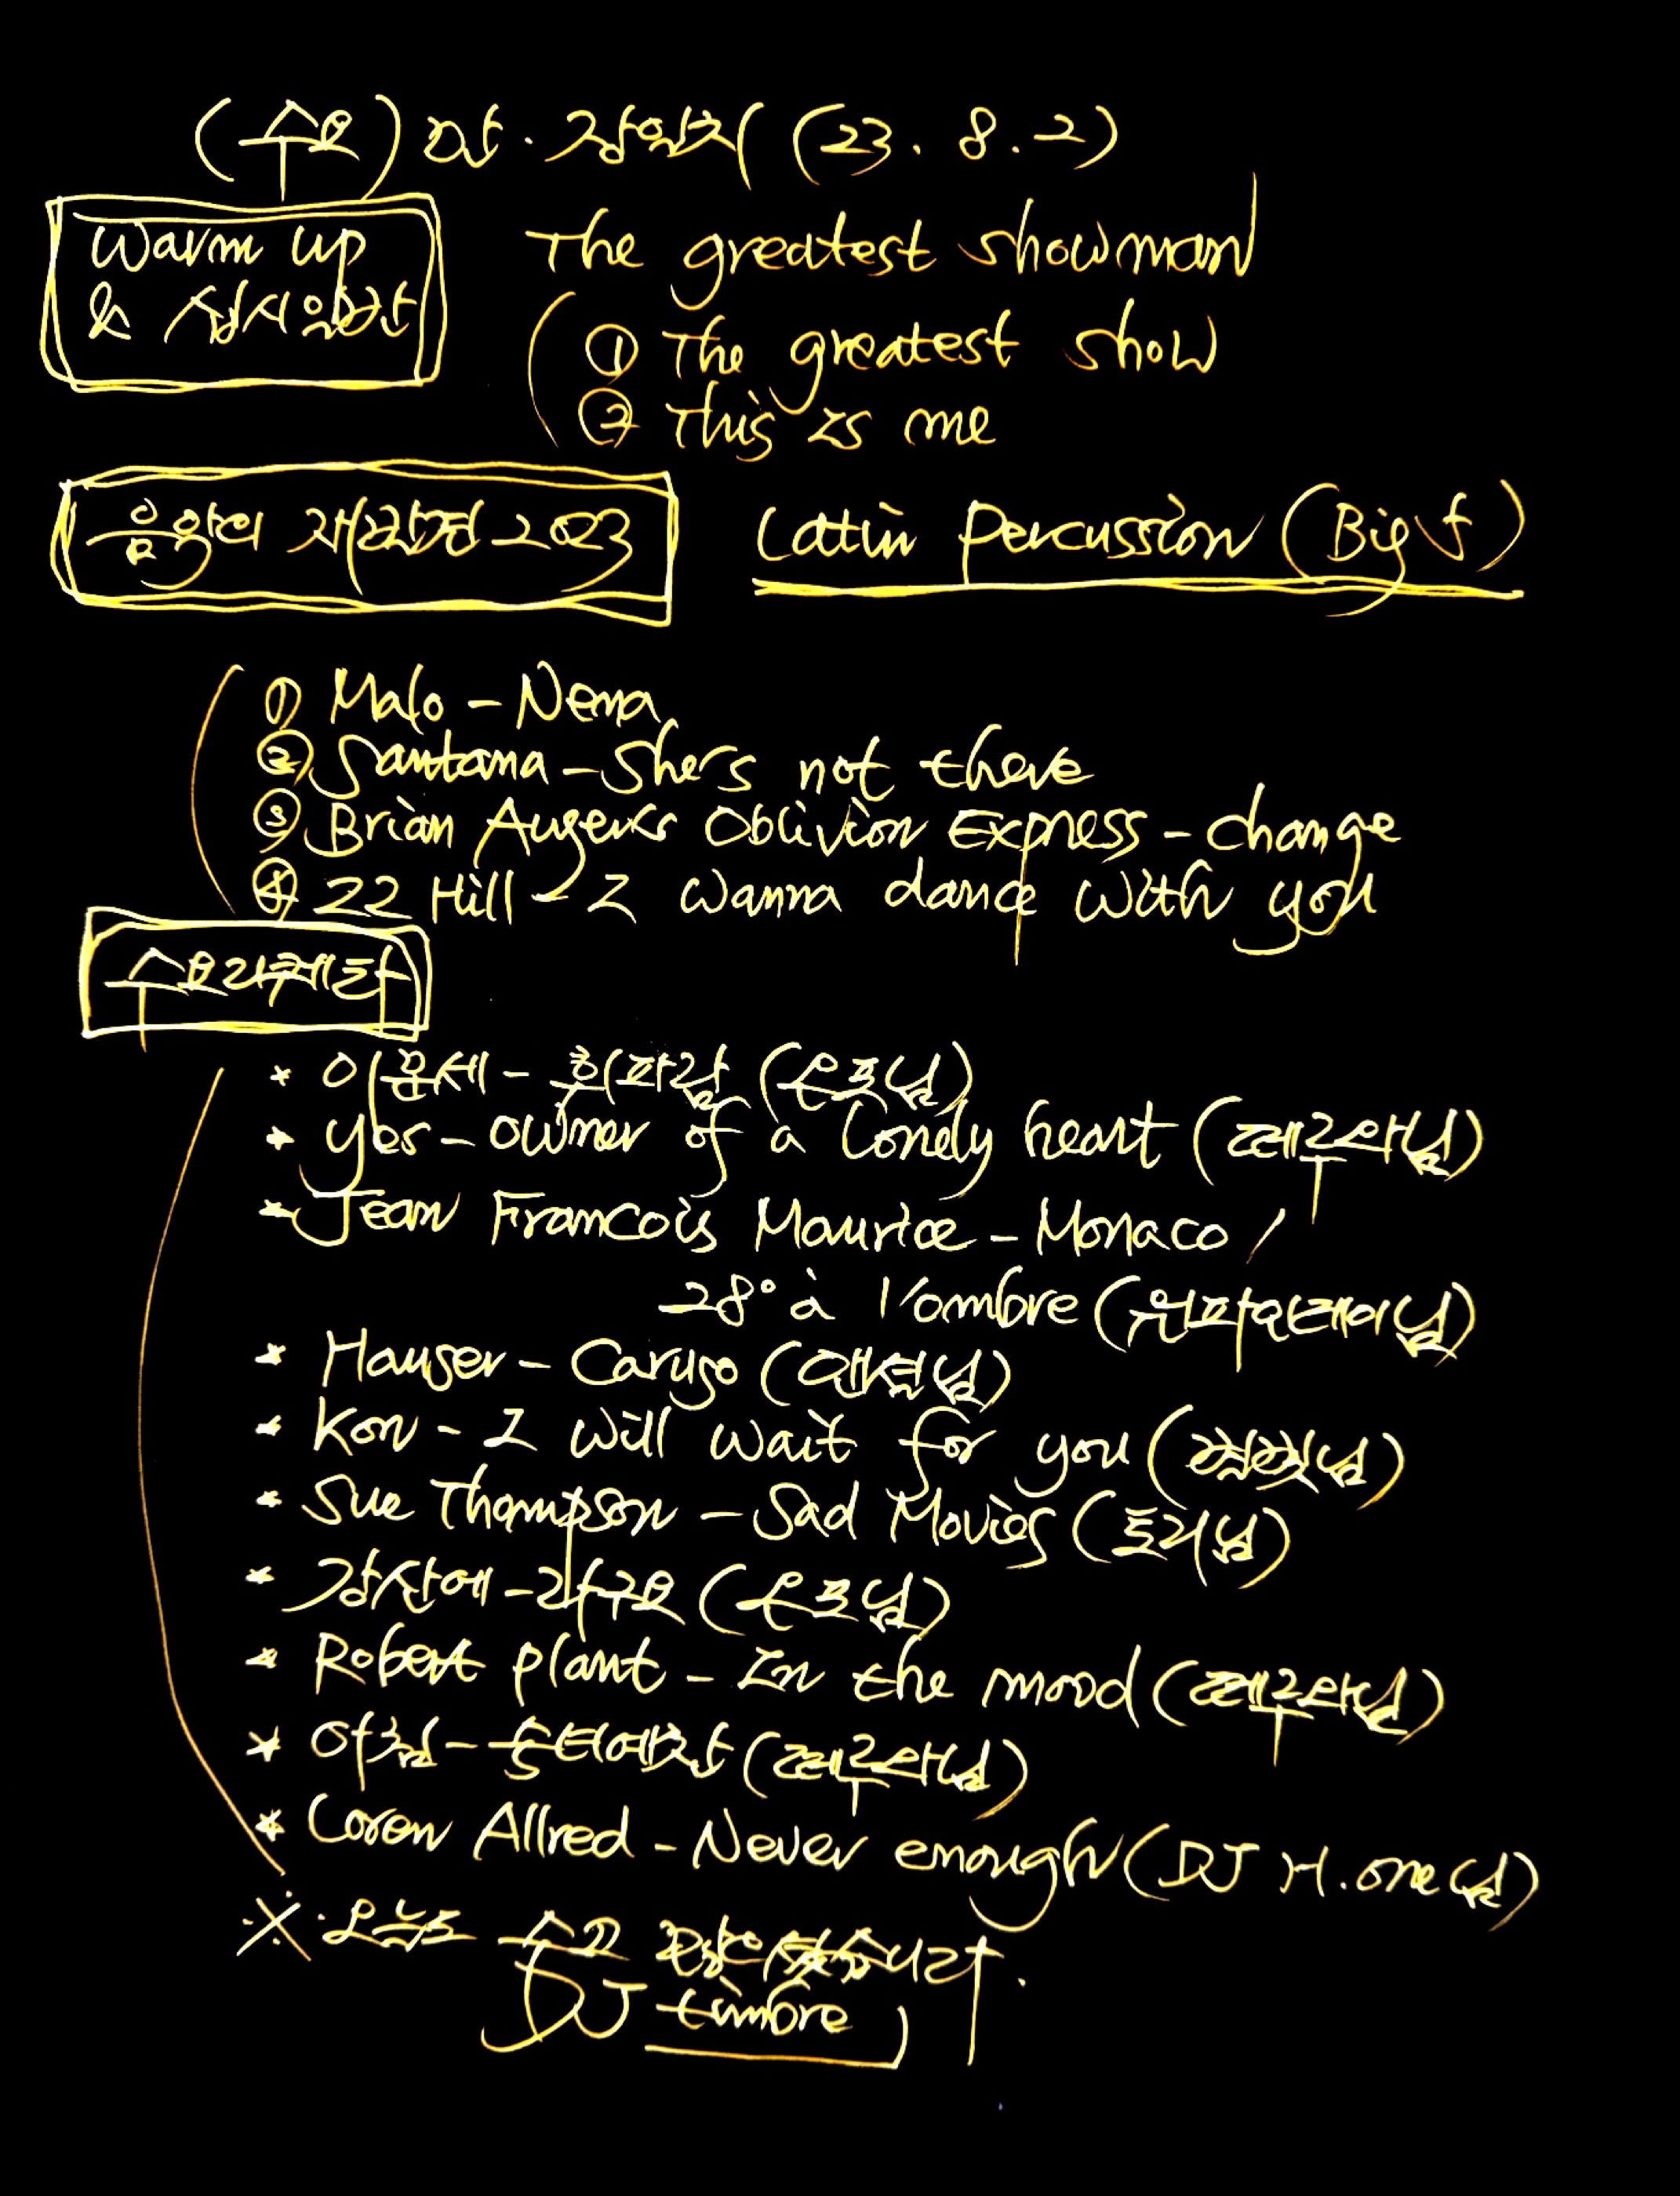 (수요) 판·장일치 (23. 8. 2)
Warm up
& 실시음반
The greatest showman
① The greatest show
② This is me
음악의 재발견 2023
Latin Percussion (Big f)
① Malo - Nena
② Santana - She's not there
③ Brian Auger's Oblivion Express - change
④ ZZ Hill - I wanna dance with you
수요라구요
* 이문세 - 휘파람 (은호님)
* Yes - owner of a lonely heart (제우스님)
* Jean Francois Maurice - Monaco /
28° à l'ombre (님)
* Hauser - Caruso (님)
* Kon - I will wait for you (님)
* Sue Thompson - Sad Movies (토리님)
* 강산에 - 라구요 (은호님)
* Robert plant - In the mood (제우스님)
* 아침 - (제우스님)
* Loren Allred - Never enough (DJ H.one님)
※ 오늘도 수고 많으셨습니다.
DJ timbre